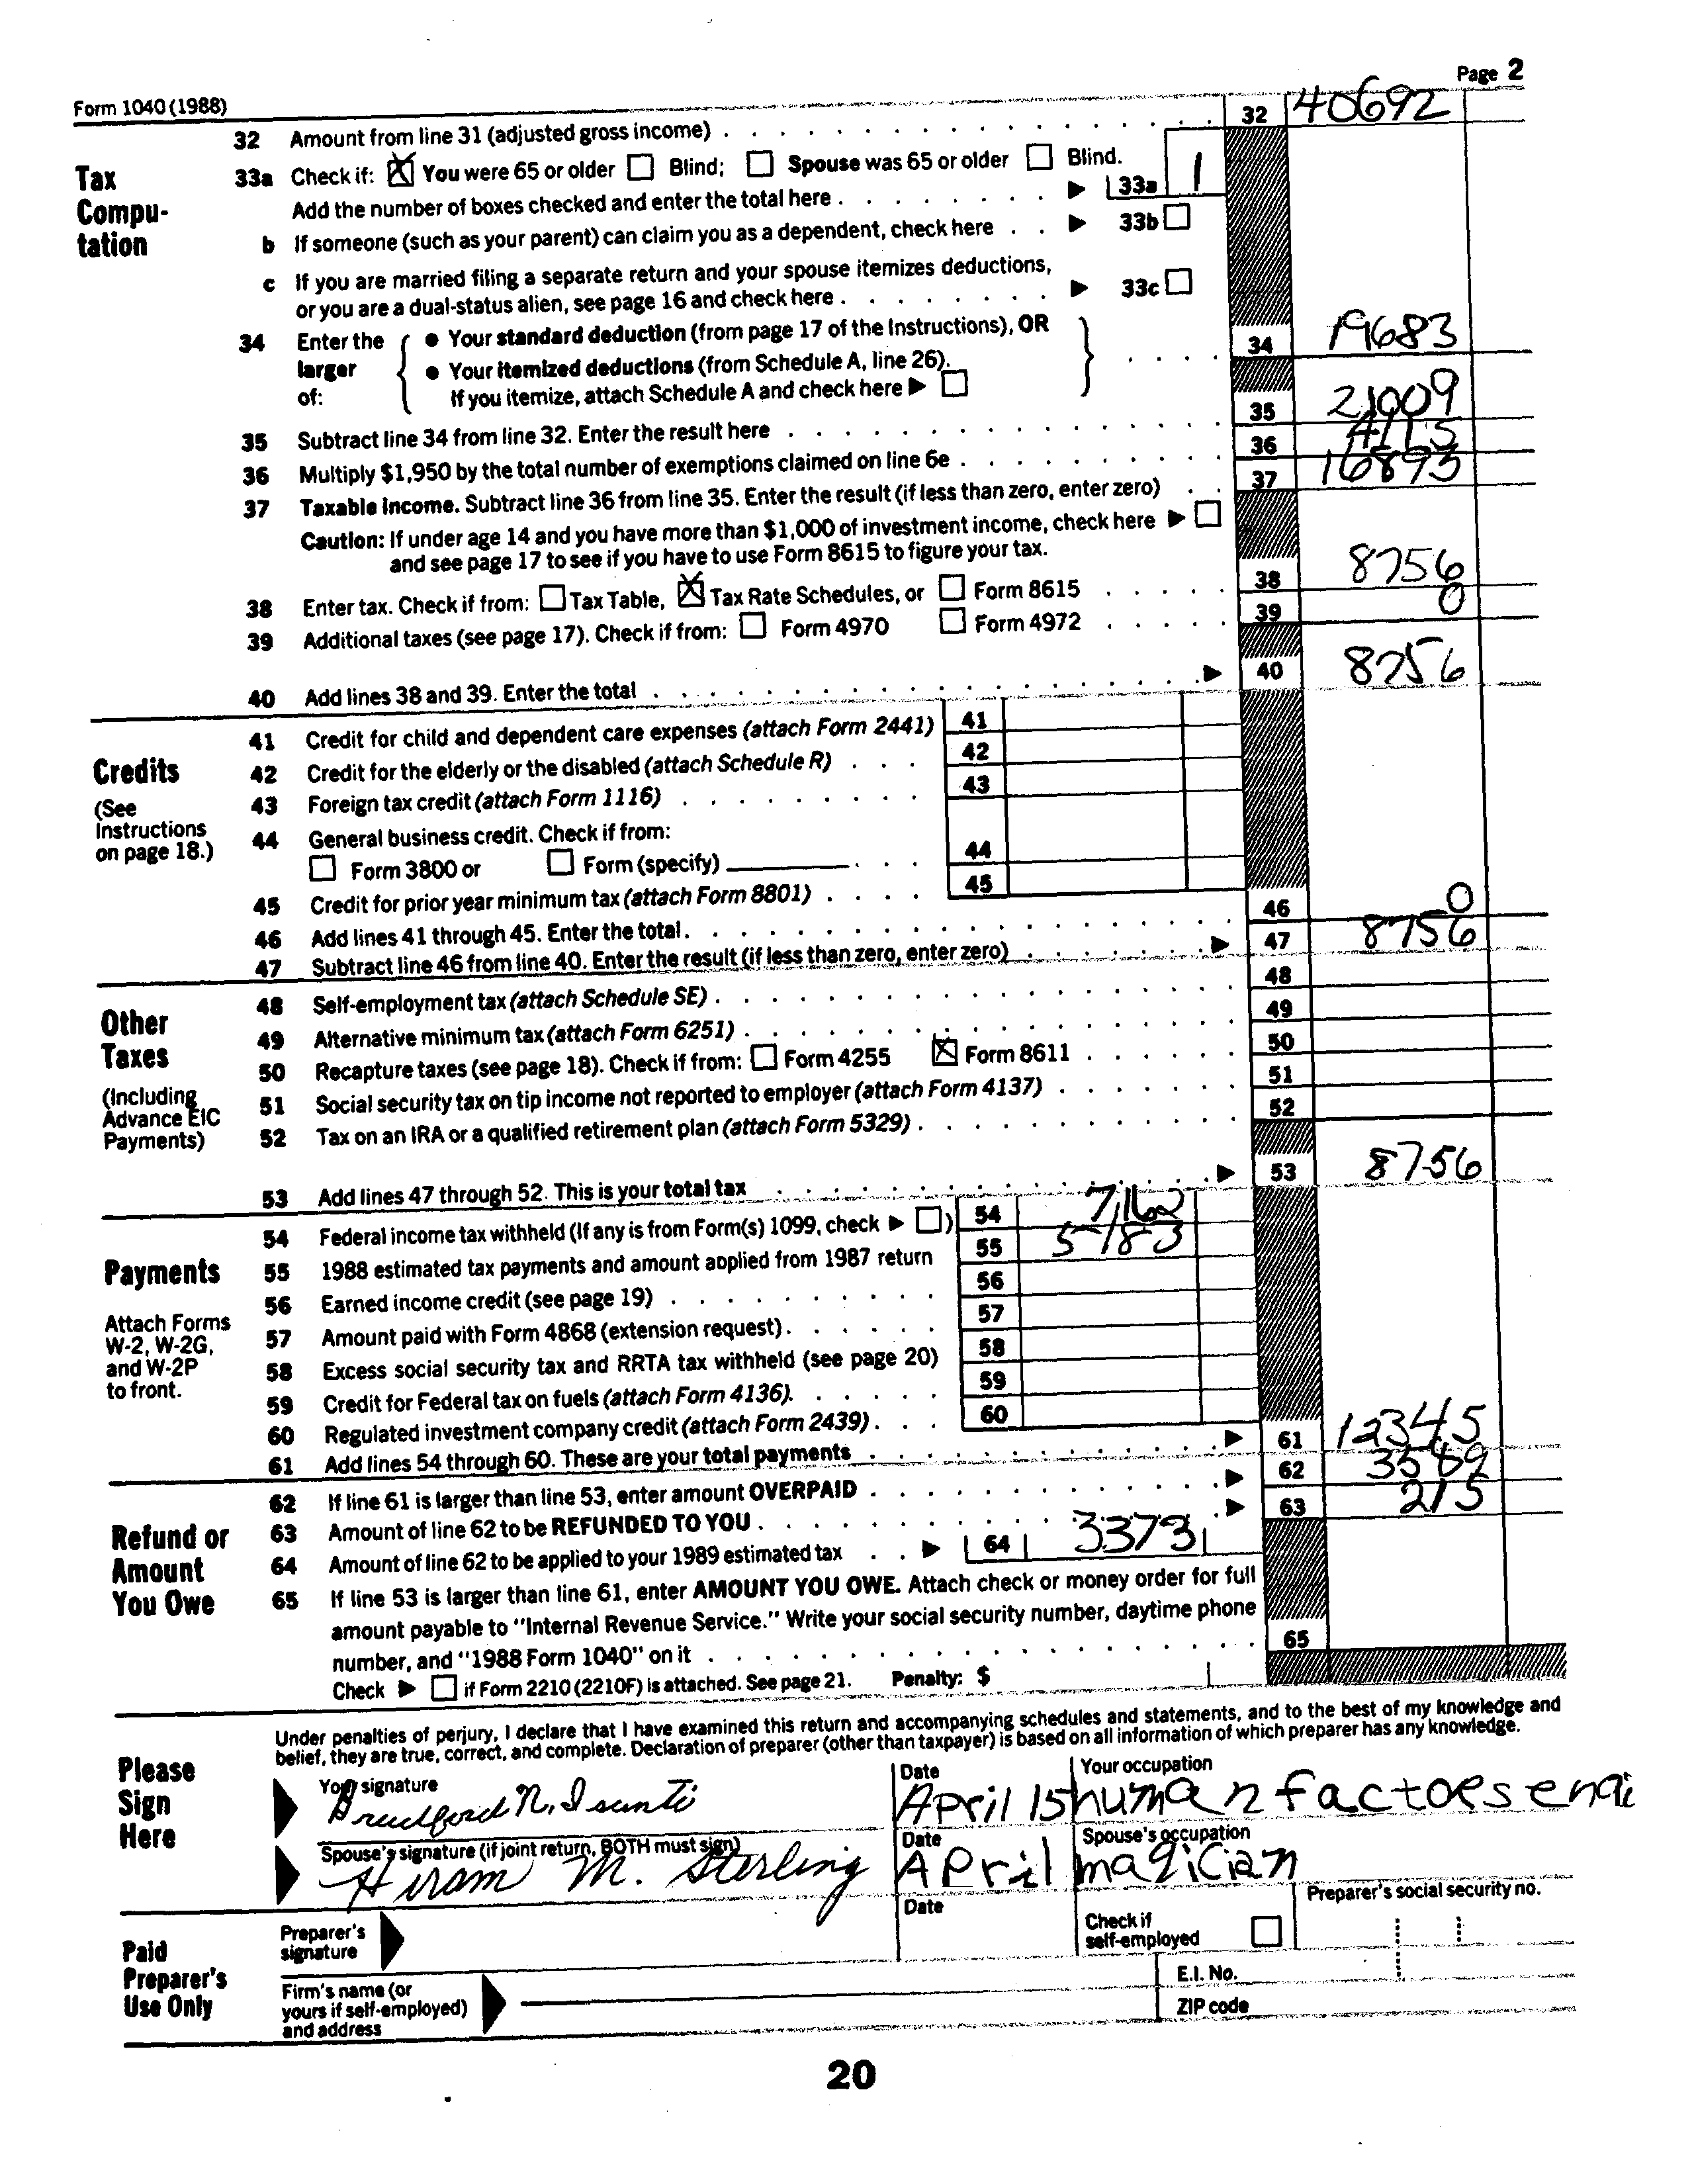 Page 2
Form 1040 (1988)
32 Amount from line 31 (adjusted gross income) . . . . . . . . . . . . . . . . . 32 40692
Tax Compu-tation
33a Check if: ☒ You were 65 or older ☐ Blind; ☐ Spouse was 65 or older ☐ Blind.
Add the number of boxes checked and enter the total here . . . . . . . . ▶ 33a 1
b If someone (such as your parent) can claim you as a dependent, check here . . ▶ 33b ☐
c If you are married filing a separate return and your spouse itemizes deductions,
or you are a dual-status alien, see page 16 and check here . . . . . . . . ▶ 33c ☐
34 Enter the larger of: { ● Your standard deduction (from page 17 of the Instructions), OR
● Your itemized deductions (from Schedule A, line 26).
If you itemize, attach Schedule A and check here ▶ ☐ } . . . . 34 19683
35 Subtract line 34 from line 32. Enter the result here . . . . . . . . . . . . . . 35 21009
36 Multiply $1,950 by the total number of exemptions claimed on line 6e . . . . . . . . . . 36 4115
37 Taxable Income. Subtract line 36 from line 35. Enter the result (if less than zero, enter zero) . . 37 16893
Caution: If under age 14 and you have more than $1,000 of investment income, check here ▶ ☐
and see page 17 to see if you have to use Form 8615 to figure your tax.
38 Enter tax. Check if from: ☐ Tax Table, ☒ Tax Rate Schedules, or ☐ Form 8615 . . . . . 38 8756
39 Additional taxes (see page 17). Check if from: ☐ Form 4970 ☐ Form 4972 . . . . . 39 0
40 Add lines 38 and 39. Enter the total . . . . . . . . . . . . . . . . . . ▶ 40 8756
Credits
(See Instructions on page 18.)
41 Credit for child and dependent care expenses (attach Form 2441) 41
42 Credit for the elderly or the disabled (attach Schedule R) . . . 42
43 Foreign tax credit (attach Form 1116) . . . . . . . . . 43
44 General business credit. Check if from:
☐ Form 3800 or ☐ Form (specify) . . . 44
45 Credit for prior year minimum tax (attach Form 8801) . . . . 45
46 Add lines 41 through 45. Enter the total . . . . . . . . . . . . . . . . . 46 0
47 Subtract line 46 from line 40. Enter the result (if less than zero, enter zero) . . . . . . ▶ 47 8756
Other Taxes
(Including Advance EIC Payments)
48 Self-employment tax (attach Schedule SE) . . . . . . . . . . . . . . . . . 48
49 Alternative minimum tax (attach Form 6251) . . . . . . . . . . . . . . . . 49
50 Recapture taxes (see page 18). Check if from: ☐ Form 4255 ☒ Form 8611 . . . . . 50
51 Social security tax on tip income not reported to employer (attach Form 4137) . . . . . . 51
52 Tax on an IRA or a qualified retirement plan (attach Form 5329) . . . . . . . . . . 52
53 Add lines 47 through 52. This is your total tax . . . . . . . . . . . . . . ▶ 53 8756
Payments
Attach Forms W-2, W-2G, and W-2P to front.
54 Federal income tax withheld (If any is from Form(s) 1099, check ▶ ☐) 54 7,162
55 1988 estimated tax payments and amount applied from 1987 return 55 5183
56 Earned income credit (see page 19) . . . . . . . . . . 56
57 Amount paid with Form 4868 (extension request) . . . . . . 57
58 Excess social security tax and RRTA tax withheld (see page 20) 58
59 Credit for Federal tax on fuels (attach Form 4136). . . . . . 59
60 Regulated investment company credit (attach Form 2439) . . . 60
61 Add lines 54 through 60. These are your total payments . . . . . . . . . . . . ▶ 61 12345
Refund or Amount You Owe
62 If line 61 is larger than line 53, enter amount OVERPAID . . . . . . . . . . . . ▶ 62 3589
63 Amount of line 62 to be REFUNDED TO YOU . . . . . . . . . . . . . . . ▶ 63 215
64 Amount of line 62 to be applied to your 1989 estimated tax . . ▶ 64 3373
65 If line 53 is larger than line 61, enter AMOUNT YOU OWE. Attach check or money order for full
amount payable to "Internal Revenue Service." Write your social security number, daytime phone
number, and "1988 Form 1040" on it . . . . . . . . . . . . . . . . . . 65
Check ▶ ☐ if Form 2210 (2210F) is attached. See page 21. Penalty: $
Please Sign Here
Under penalties of perjury, I declare that I have examined this return and accompanying schedules and statements, and to the best of my knowledge and
belief, they are true, correct, and complete. Declaration of preparer (other than taxpayer) is based on all information of which preparer has any knowledge.
Your signature Date Your occupation
Bradford N. Isanti April 15 human factors engi
Spouse's signature (if joint return, BOTH must sign) Date Spouse's occupation
Hiram M. Sterling April magician
Paid Preparer's Use Only
Preparer's signature Date Check if self-employed ☐ Preparer's social security no.
Firm's name (or yours if self-employed) and address E.I. No.
ZIP code
20